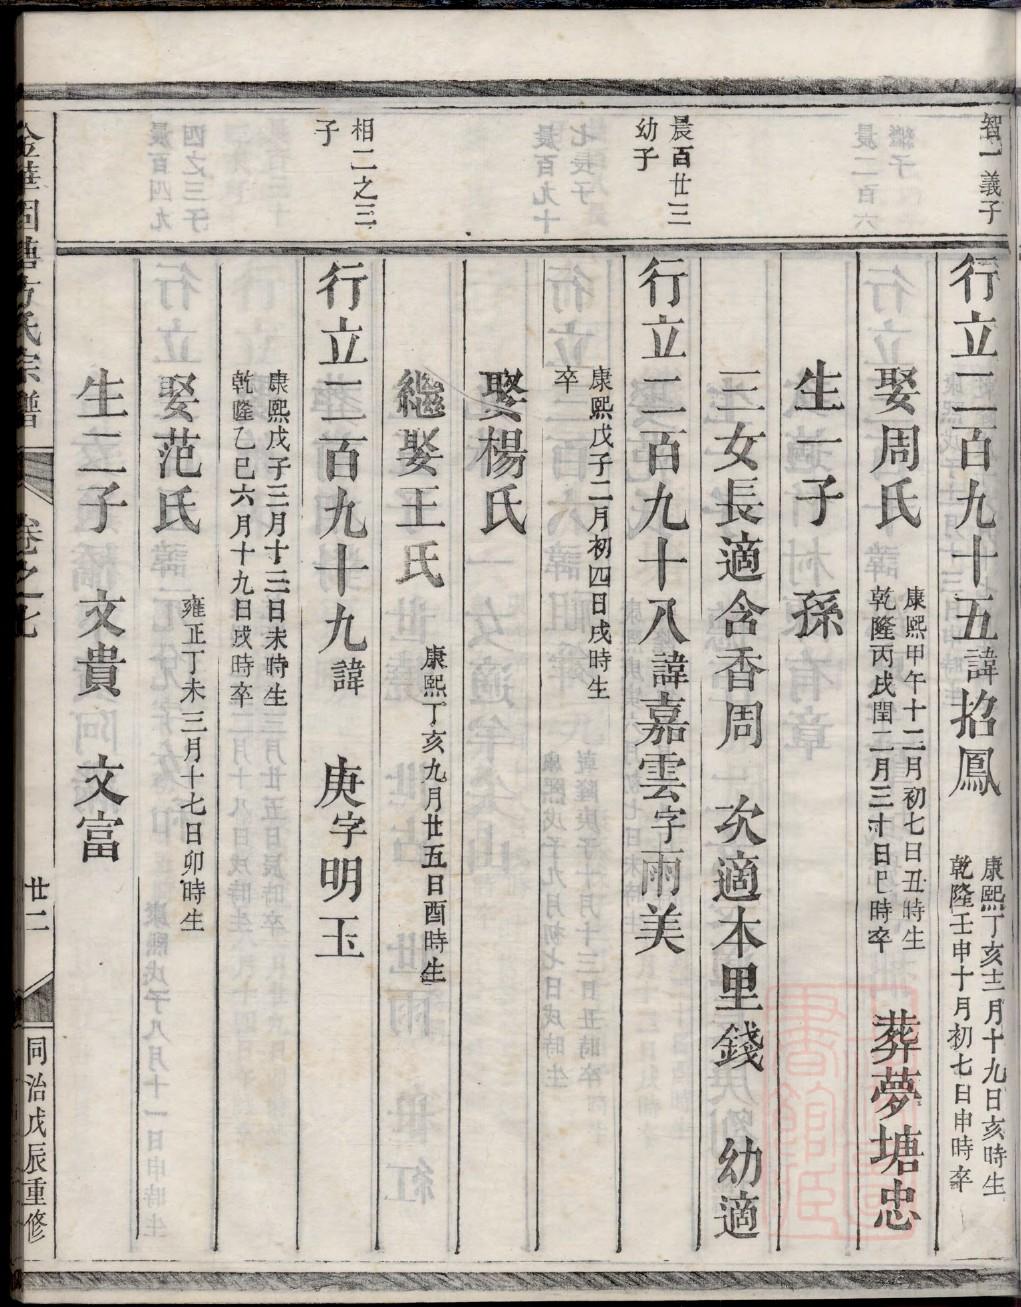 智一義子
行立二百九十五諱招鳳 康熙丁亥十二月十九日亥時生
乾隆壬申十月初七日申時卒
娶周氏 康熙甲午十二月初七日丑時生
乾隆丙戌閏二月三十日巳時卒 葬夢塘忠
生一子 孫
三女長適含香周 次適本里錢 幼適
晨百廿三
幼子
行立二百九十八諱嘉雲字雨美
康熙戊子二月初四日戌時生
卒
娶楊氏
繼娶王氏 康熙丁亥九月廿五日酉時生
相二之三
子
行立二百九十九諱 庚字明玉
康熙戊子三月十二日未時生
乾隆乙巳六月十九日戌時卒
娶范氏 雍正丁未三月十七日卯時生
生二子 文貴 文富
金華固塘方氏宗譜 卷之七 廿二 同治戊辰重修